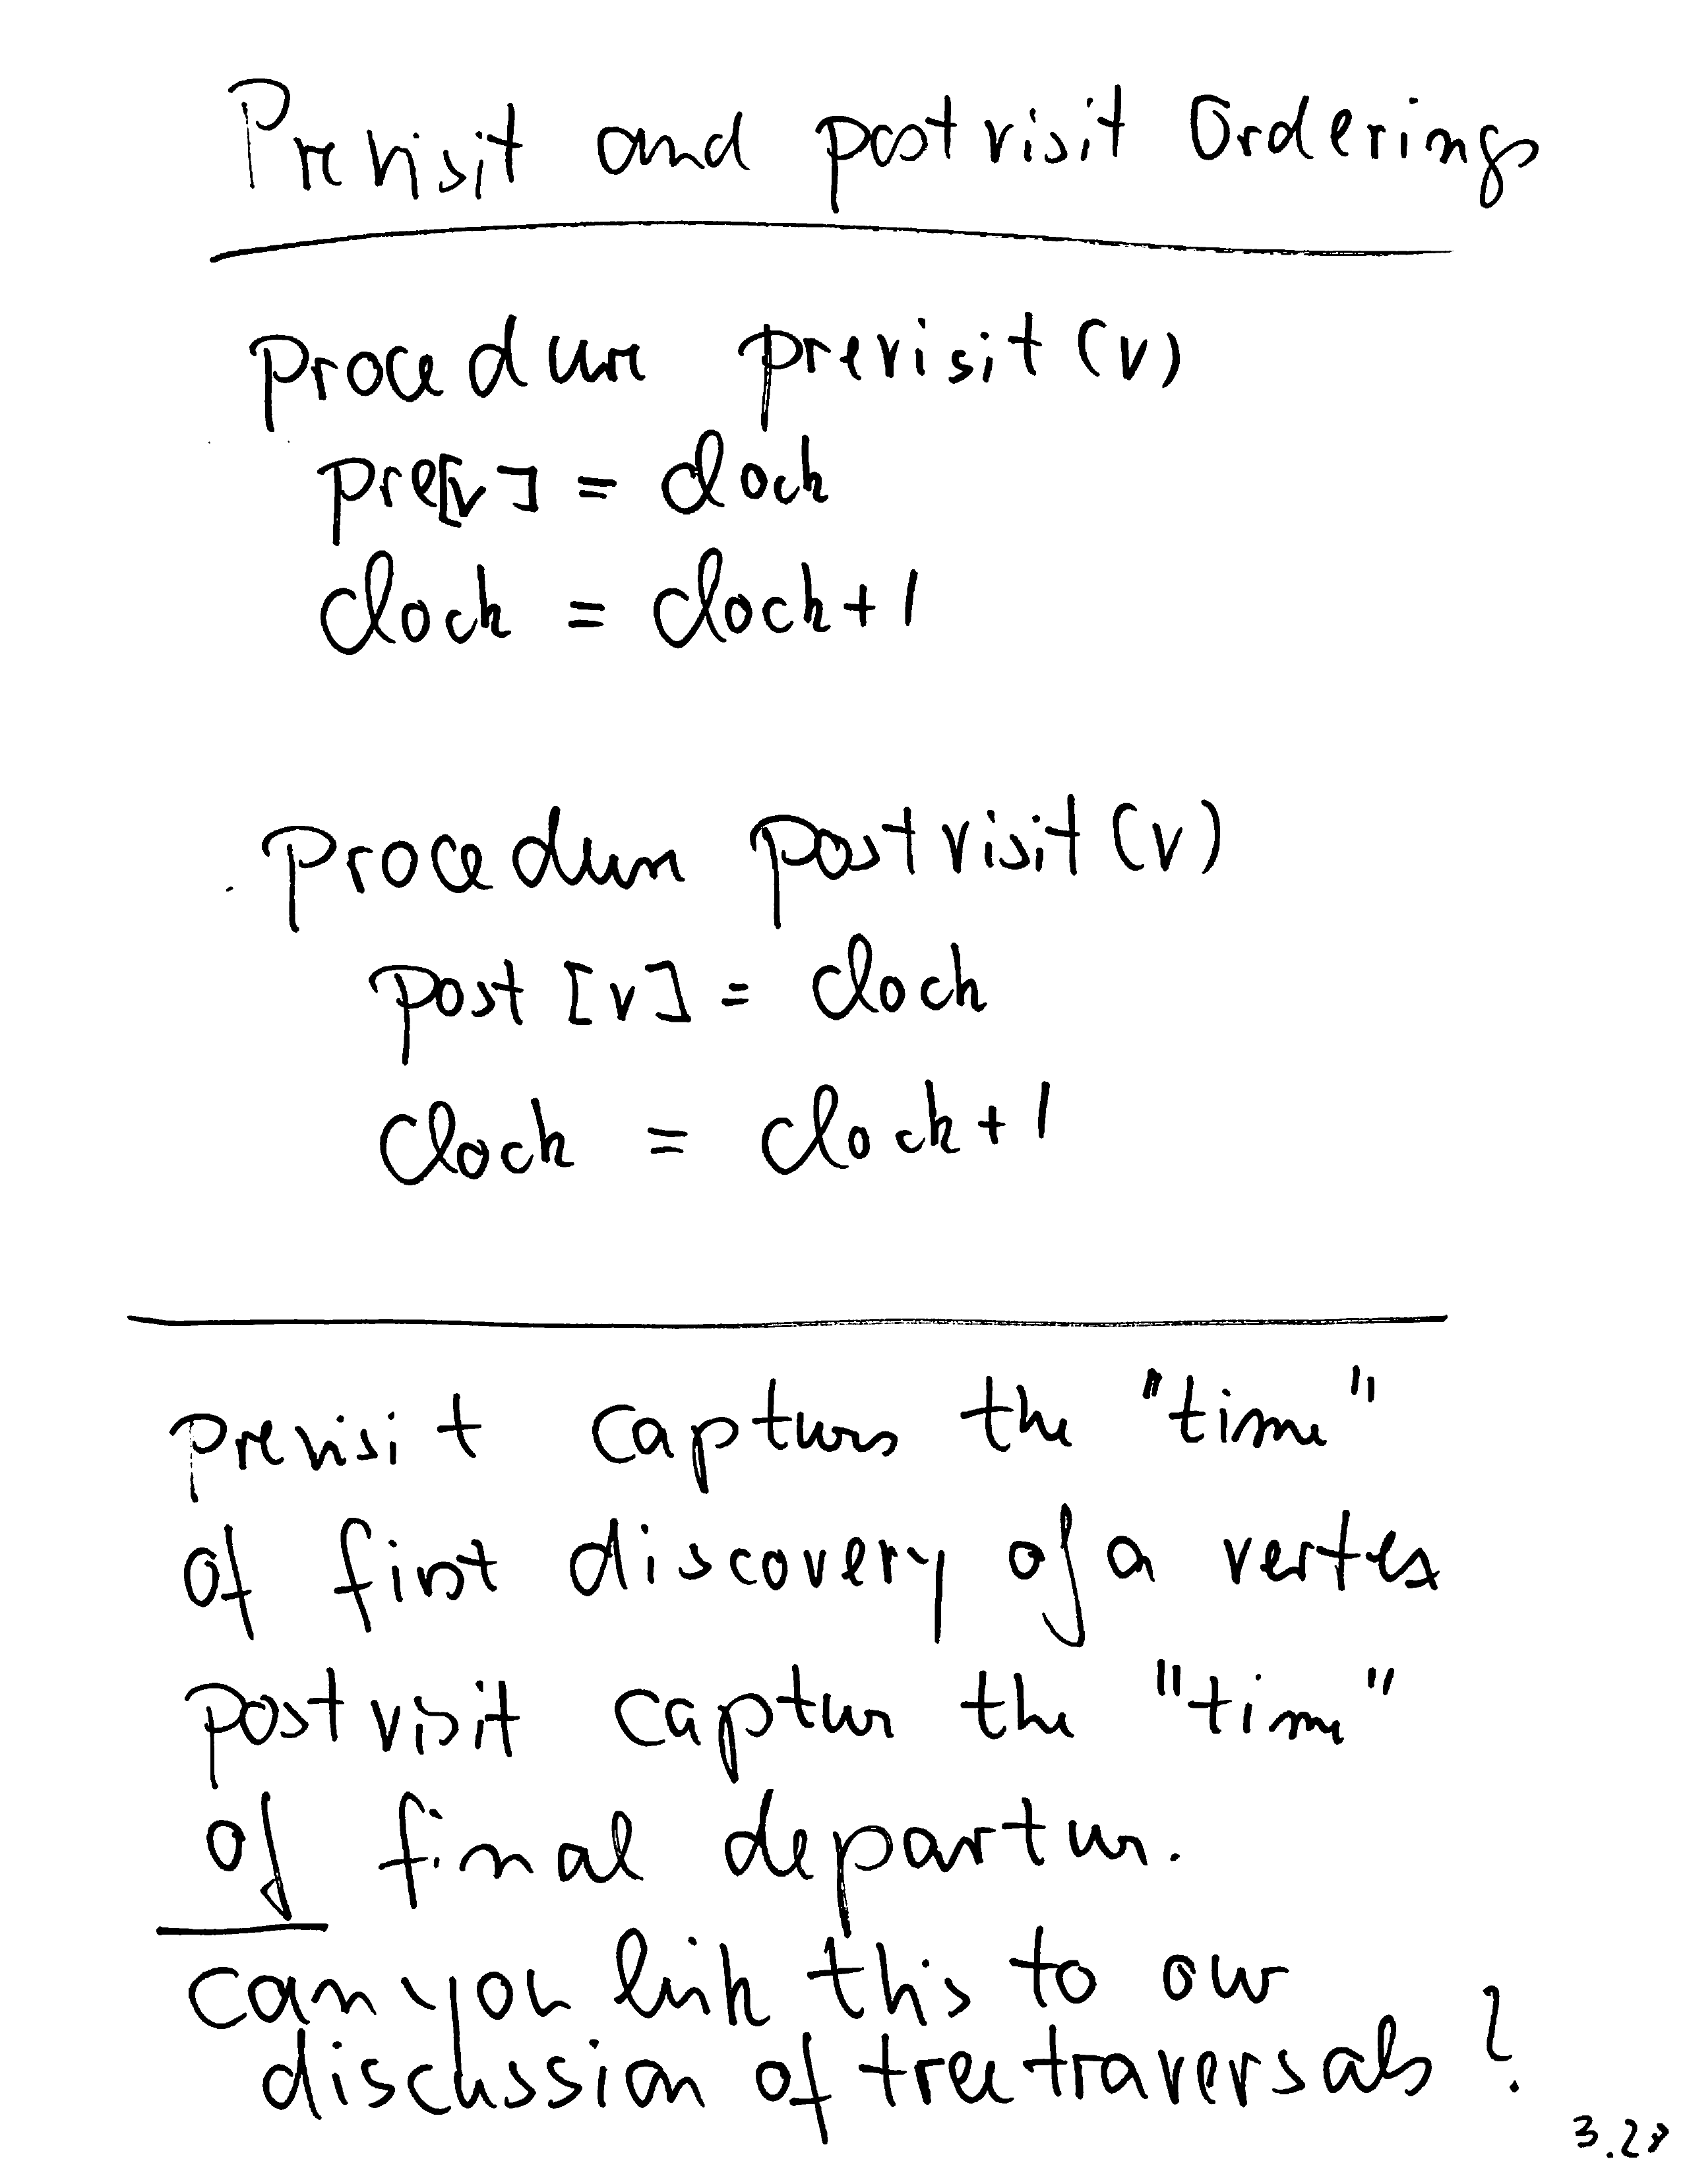 Previsit and postvisit Orderings
procedure previsit (v)
pre[v] = clock
clock = clock+1
procedure postvisit (v)
post [v] = clock
clock = clock+1
previsit captures the "time"
of first discovery of a vertex
postvisit captur the "time"
of final departure.
can you link this to our
discussion of tree traversals?